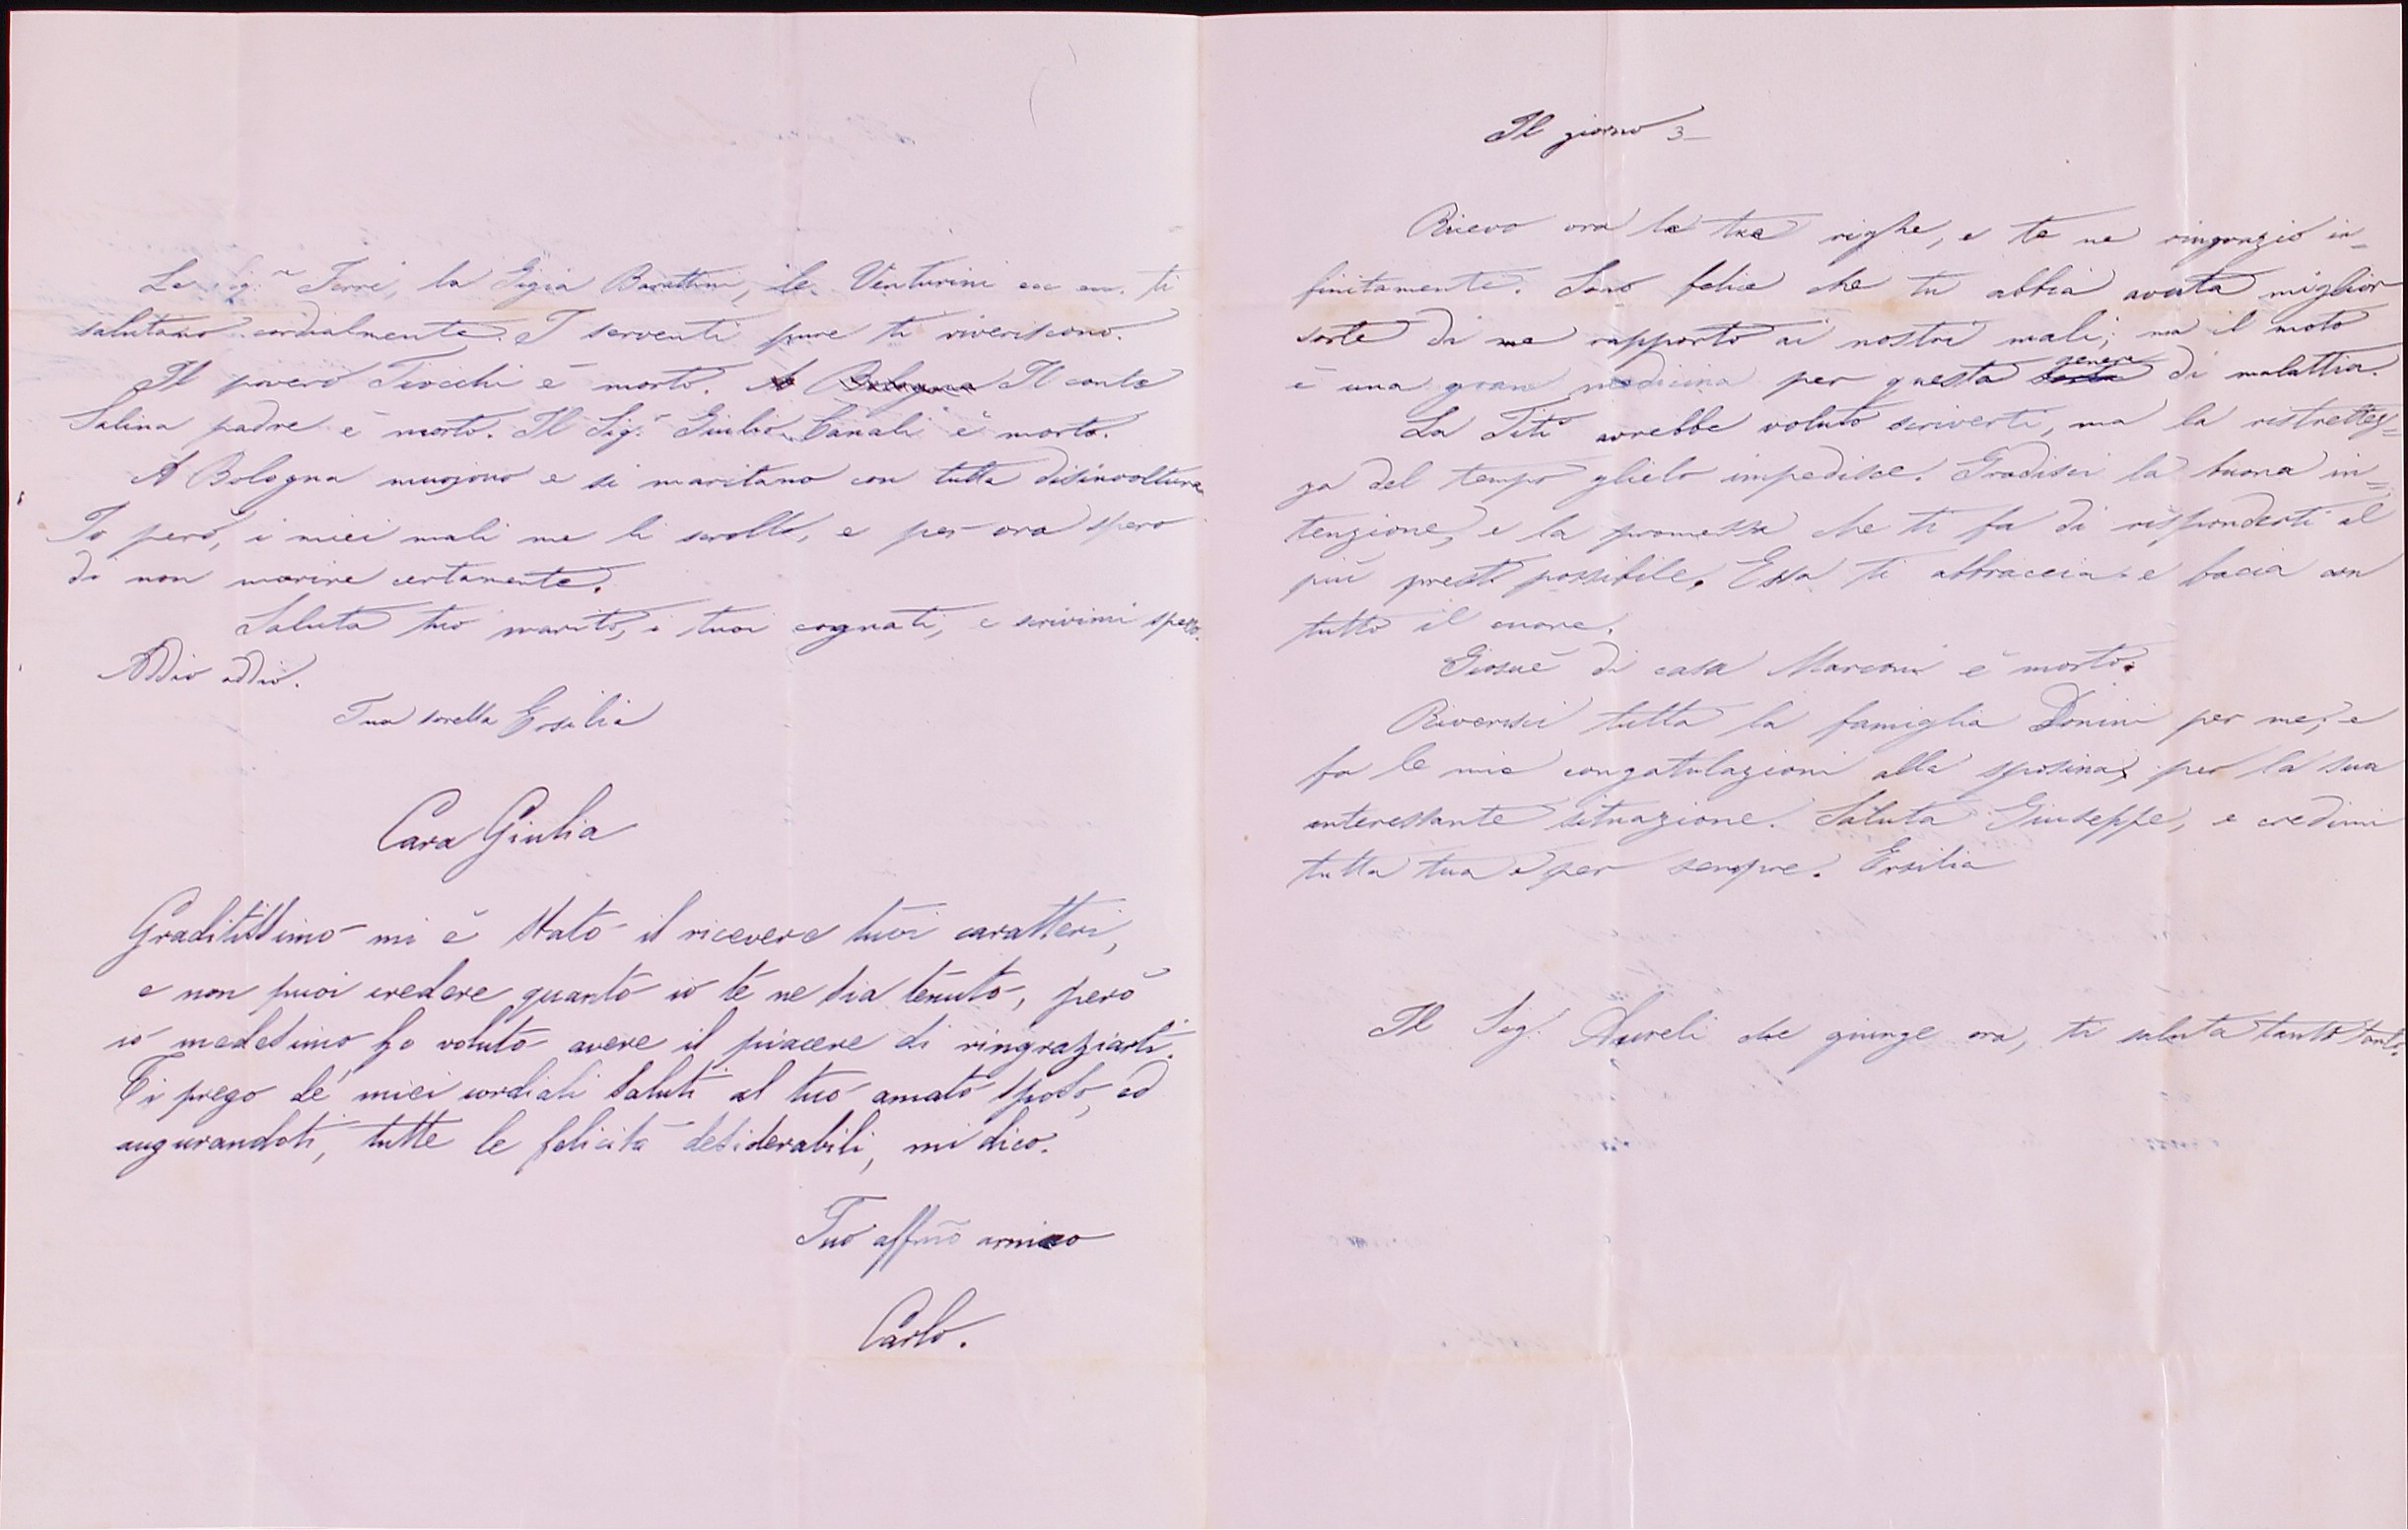 Le Sig.e Ferri, la Gigia Barattini, le Venturini ecc ecc. ti
salutano cordialmente. I serventi pure ti riveriscono.
Il povero Tiocchi è morto. A Bologna Il conte
Salina padre è morto. Il Sig.r Giulio Canali è morto.
A Bologna muojono e si maritano con tutta disinvoltura
Io però, i miei mali me li scrollo, e per ora spero
di non morire certamente.
Saluta tuo marito, i tuoi cognati, e scrivimi spesso.
Addio addio.
Tua sorella Ersilia
Cara Giulia
Graditissimo mi è stato il ricevere tuoi caratteri,
e non puoi credere quanto io te ne sia tenuto, però
io medesimo ho voluto avere il piacere di ringraziarti.
Ti prego de' miei cordiali saluti al tuo amato sposo, ed
augurandoti, tutte le felicità desiderabili, mi dico.
Tuo affmo amico
Carlo.
Il giorno 3
Ricevo ora le tue righe, e te ne ringrazio in=
finitamente. Sono felice che tu abbia avuta miglior
sorte di me rapporto ai nostri mali; ma il moto
è una gran medicina per questo genere di malattia.
La Titi avrebbe voluto scriverti, ma la ristrettez=
za del tempo glielo impedisce. Gradisci la buona in=
tenzione, e la promessa che ti fa di risponderti al
più presto possibile. Essa ti abbraccia e bacia con
tutto il cuore.
Giosuè di casa Marconi è morto.
Riverisci tutta la famiglia Donini per me; e
fa le mie congatulazioni alla sposina, per la sua
interessante situazione. Saluta Giuseppe, e credimi
tutta tua e per sempre. Ersilia
Il Sig.r Aureli che giunge ora, ti saluta tanto tanto.